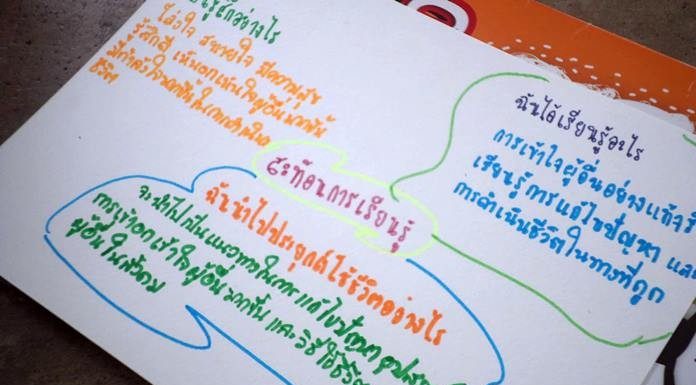 รู้สึกอย่างไร
โล่งใจ สบายใจ มีความสุข
รู้สึกดี เห็นอกเห็นใจผู้อื่นมากขึ้น
มีกำลังใจมากขึ้นในการ
ชีวิต
ฉันได้เรียนรู้อะไร
การเข้าใจผู้อื่นอย่างแท้จริ
เรียนรู้การแก้ไขปัญหา และ
การดำเนินชีวิตในทางที่ถูก
สะท้อนการเรียนรู้
ฉันนำไปประยุกต์ใช้ชีวิตอย่างไร
จะนำไปเป็นแนวทางในการแก้ไขปัญหา อุปสร
การเข้าอกเข้าใจผู้อื่นมากขึ้น และวิธีใช้ชีวิต
ผู้อื่นในสังคม